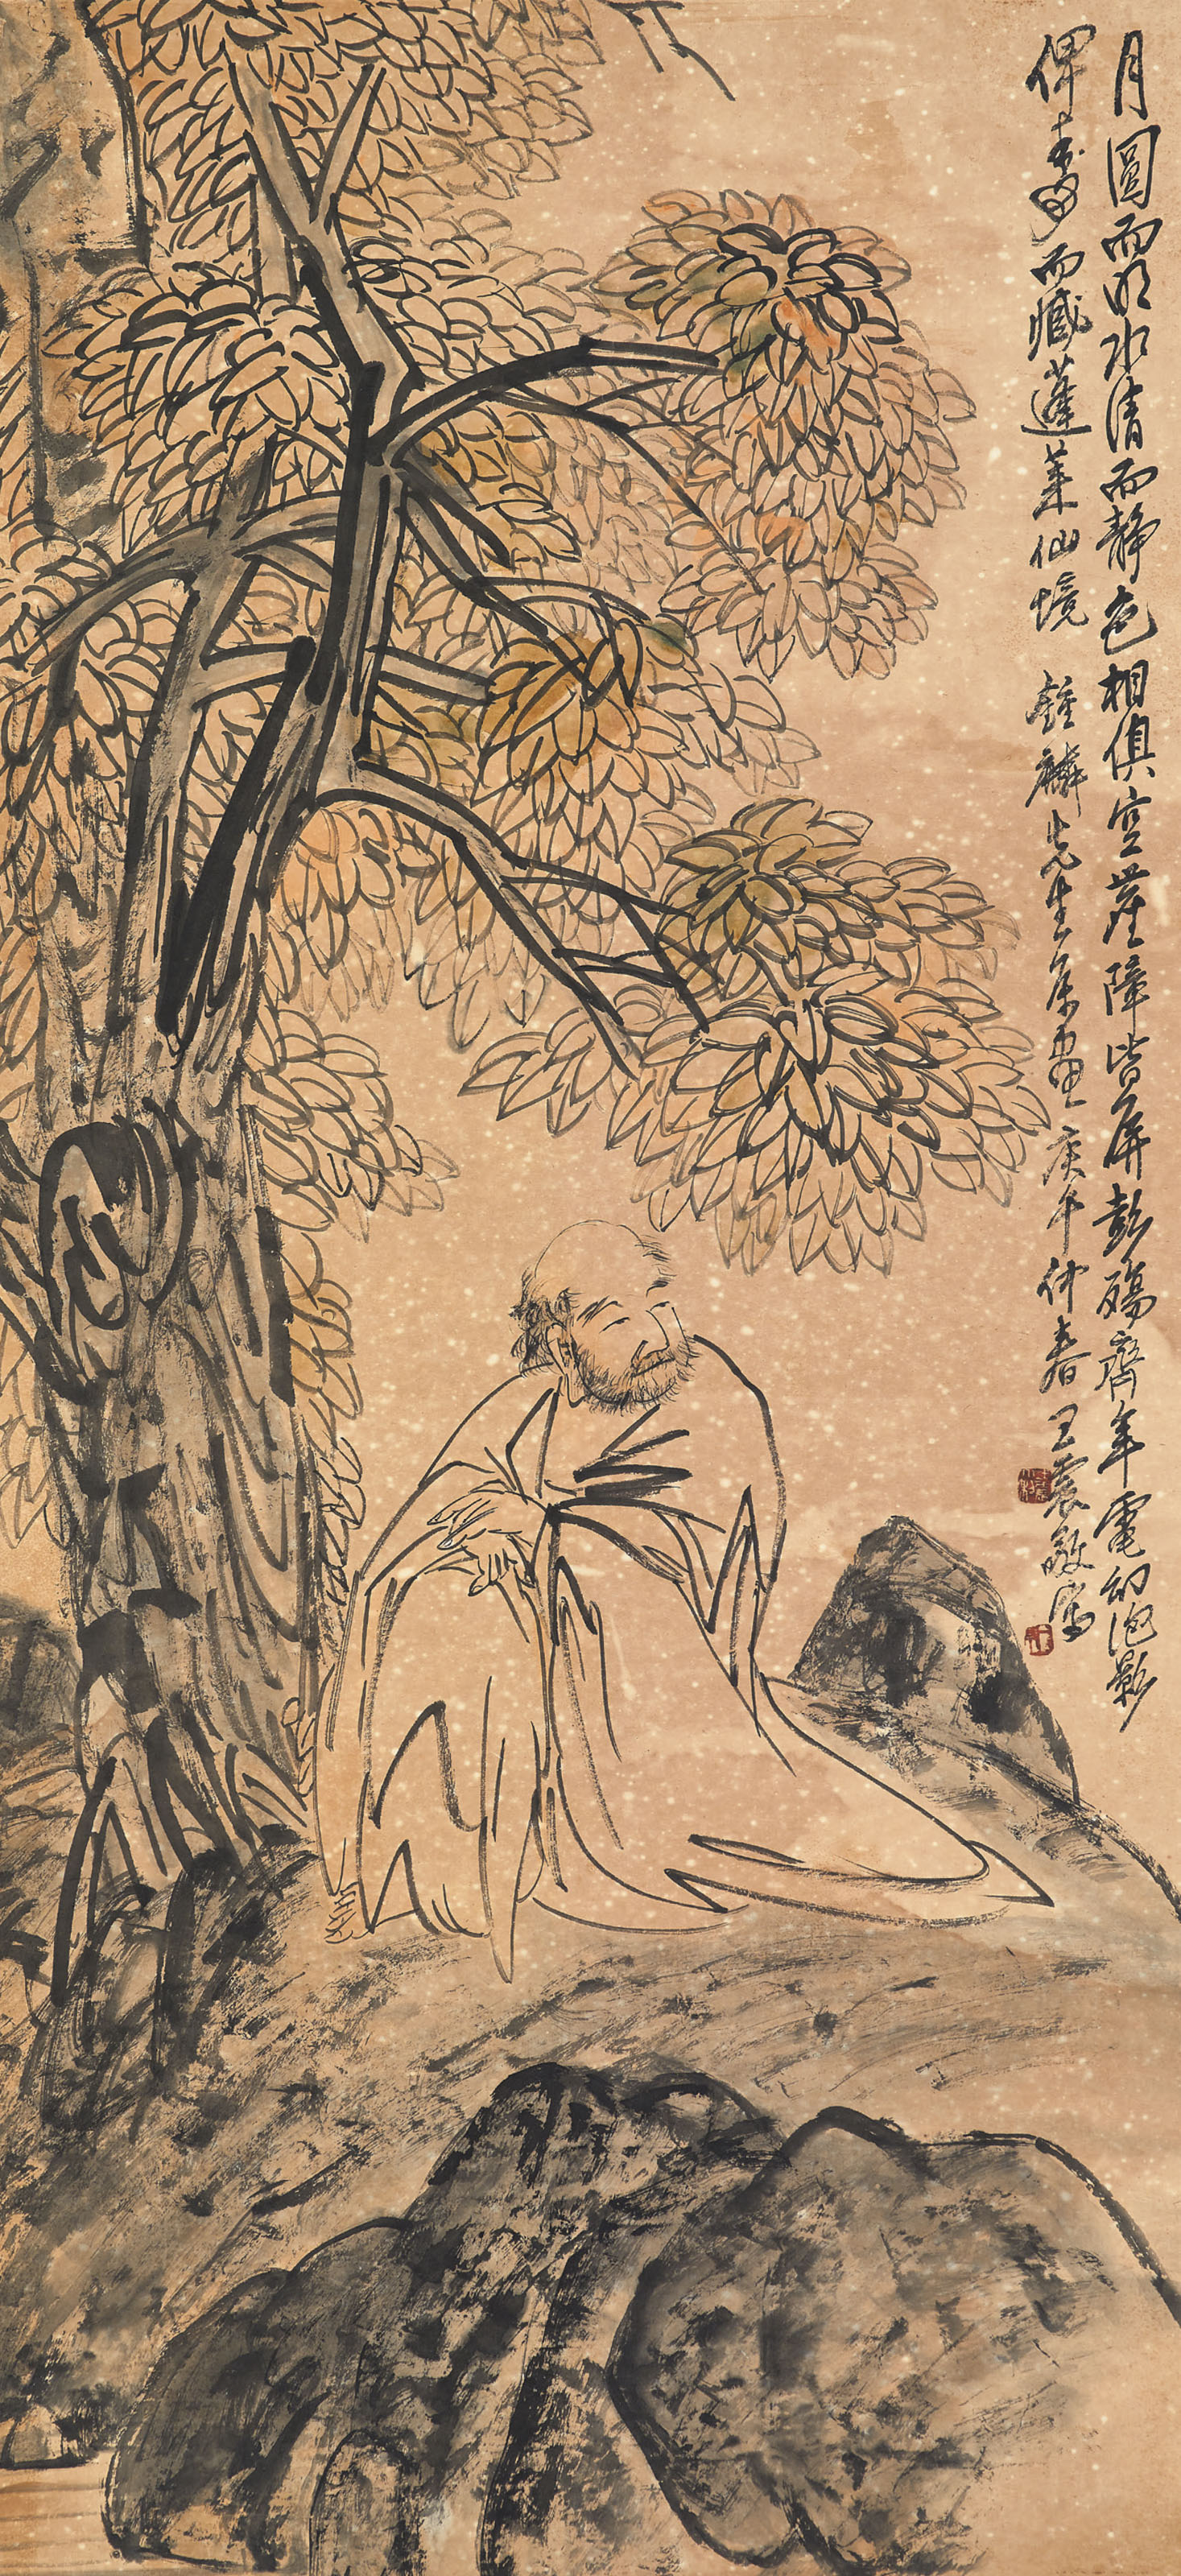 月圓而明水清而靜色相俱空菩障皆屏彭殤齊年電幻泡影
俾壽而臧蓬萊仙境 鍾麟先生屬畫 庚午仲春 王震敬寫